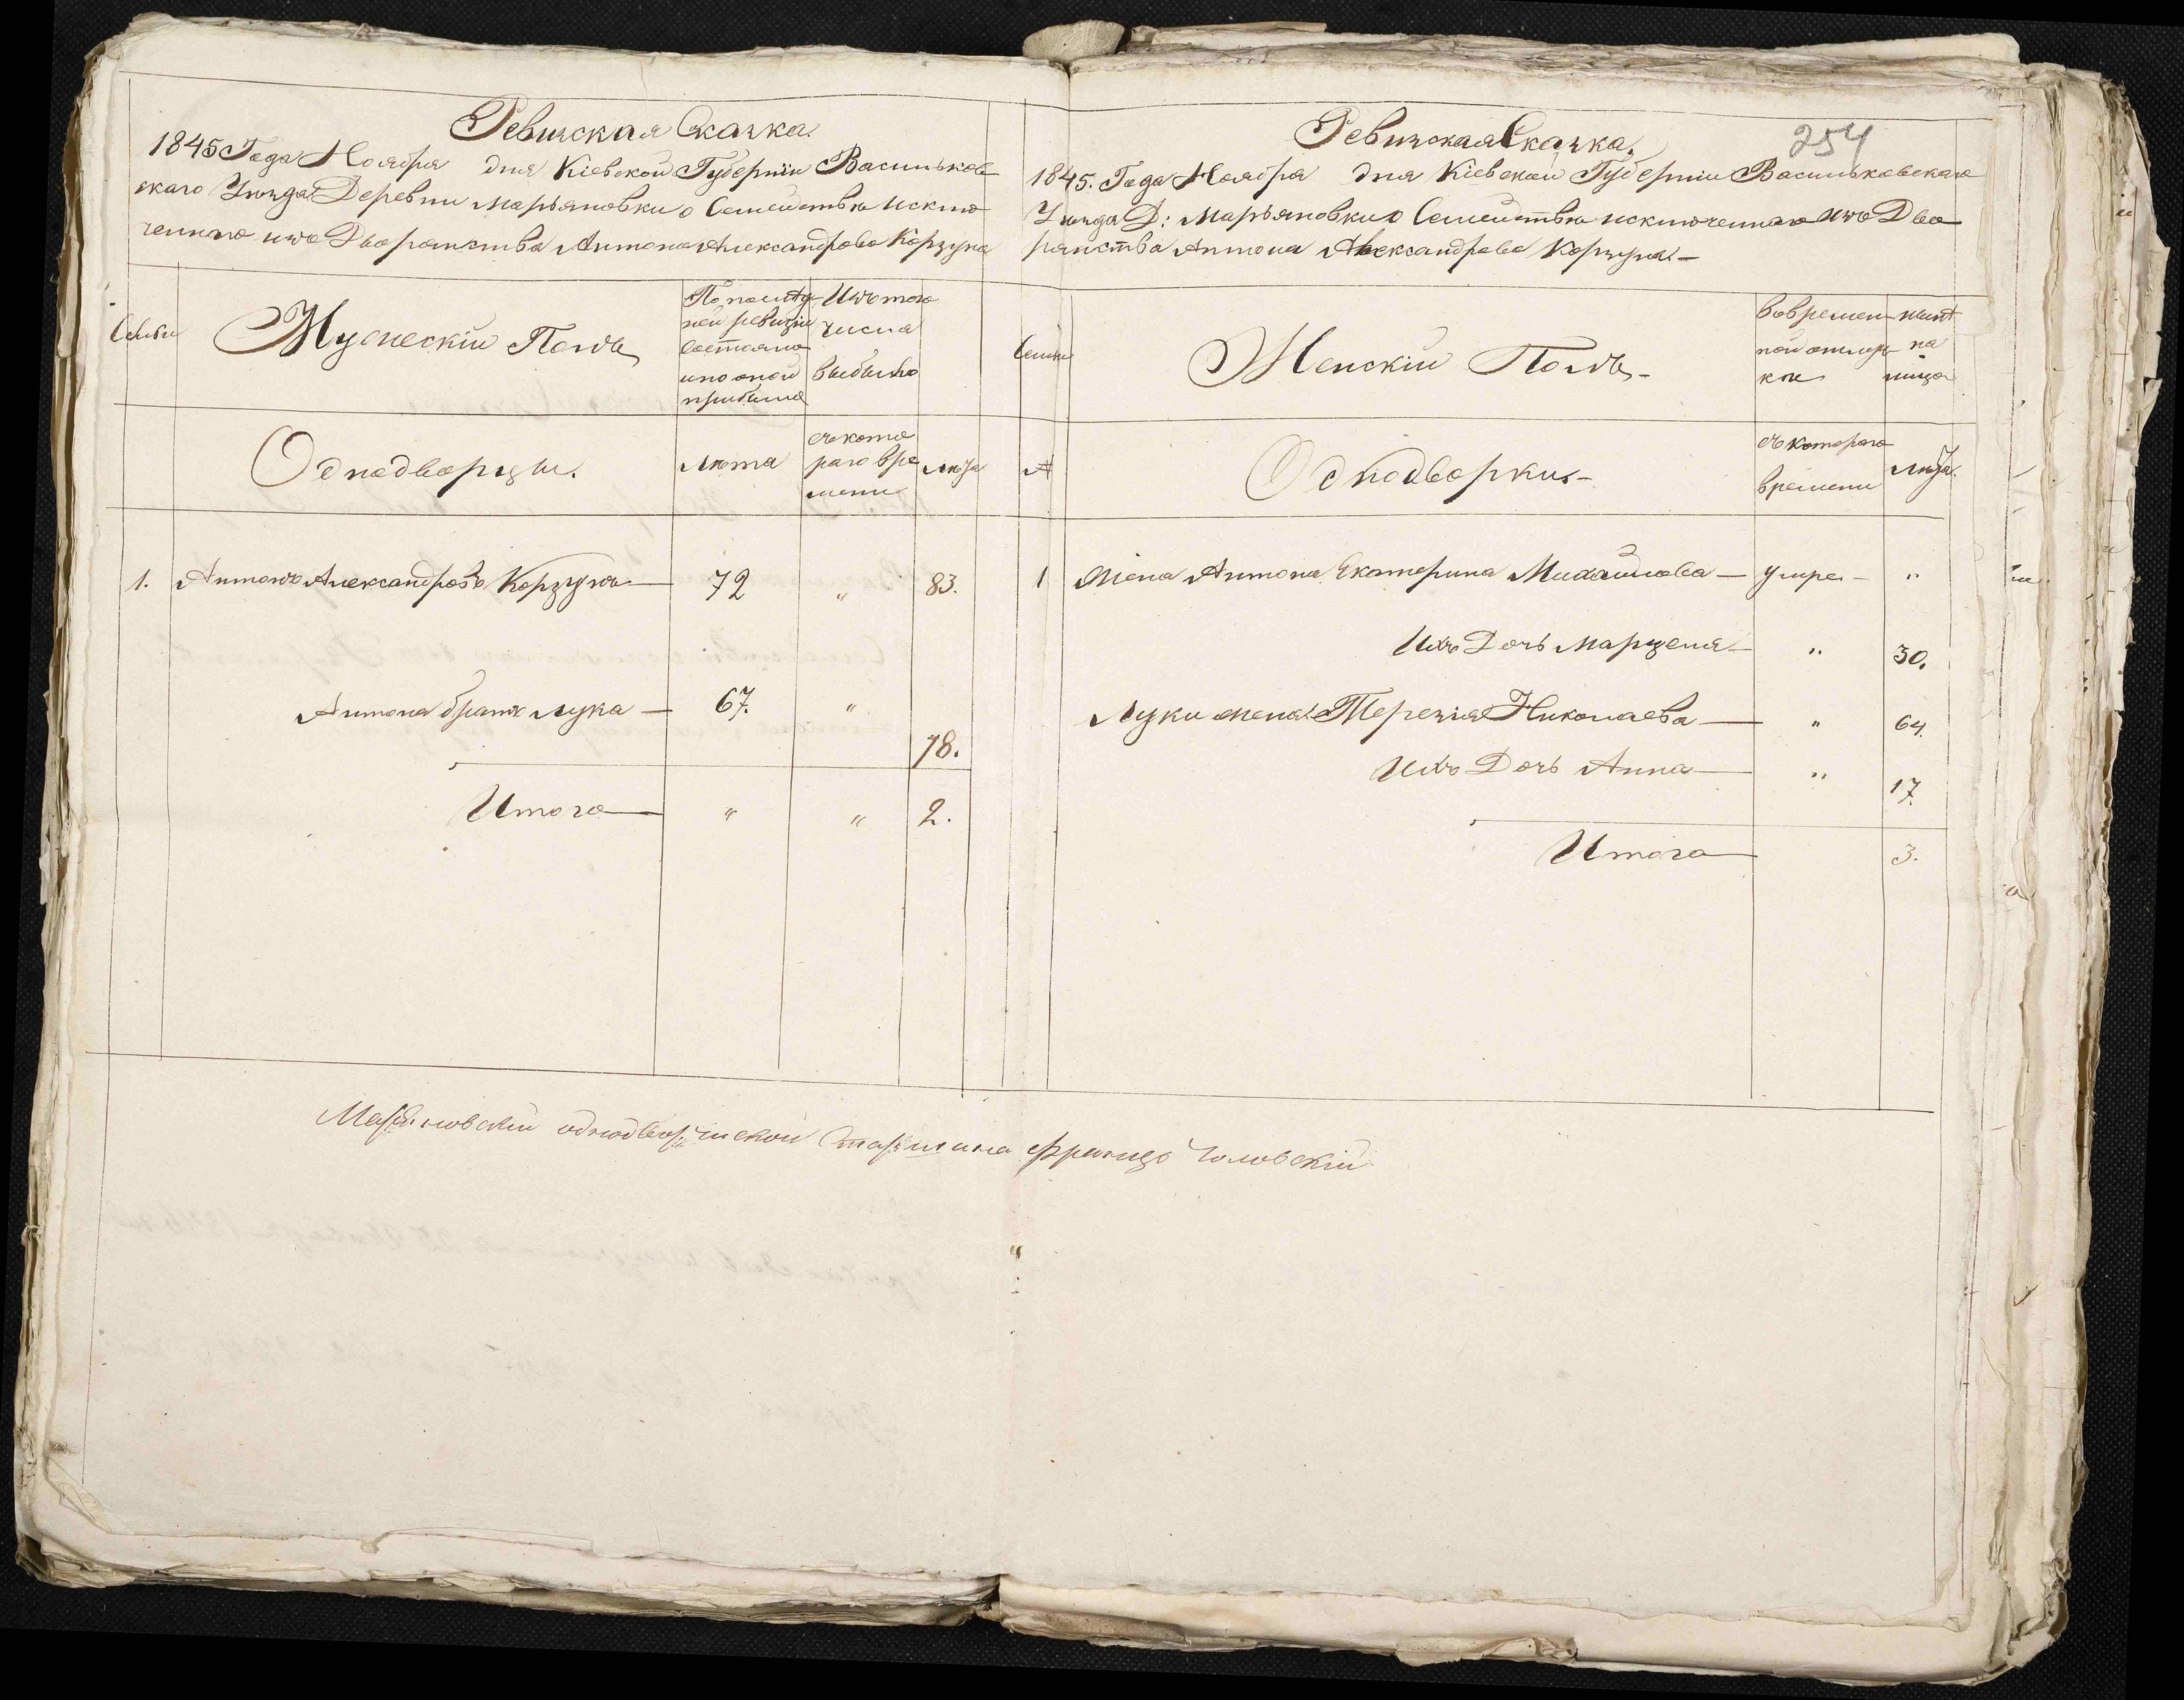 Ревизская Сказка.
1845 Года Ноября дня Кіевской Губерніи Васильков-
скаго Уѣзда Деревни Марьяновки о Семействѣ исклю-
ченнаго изъ Дворянства Антона Александрова Корзуна
Семьи
Мужескій Полъ
По послѣд-
ней ревизіи
состояло
и по оной
прибыло
Изъ того
числа
выбыло
Однодворцы.
лѣта
съ кото
раго вре
мени
лѣта
1. Антонъ Александровъ Корзунъ — 72 " 83.
Антона братъ Лука — 67. "
78.
Итого — " " 2.
254
Ревизская Сказка.
1845. Года Ноября дня Кіевской Губерніи Васильковскаго
Уѣзда Д: Марьяновки о Семействѣ исключеннаго изъ Дво-
рянства Антона Александрова Корзуна. —
Семьи
Женскій Полъ. -
Во времен-
ной отлуч-
кѣ
на
лица
№
Однодворки. -
съ котораго
времени
лѣта.
1 Жена Антона Екатерина Михайлова — умре - "
Ихъ Дочь Марцеля — " 30.
Луки жена Терезія Николаева — " 64.
Ихъ Дочь Анна — " 17.
Итого — 3.
Марьяновскій однодворческой старшина Францъ Чоловскій